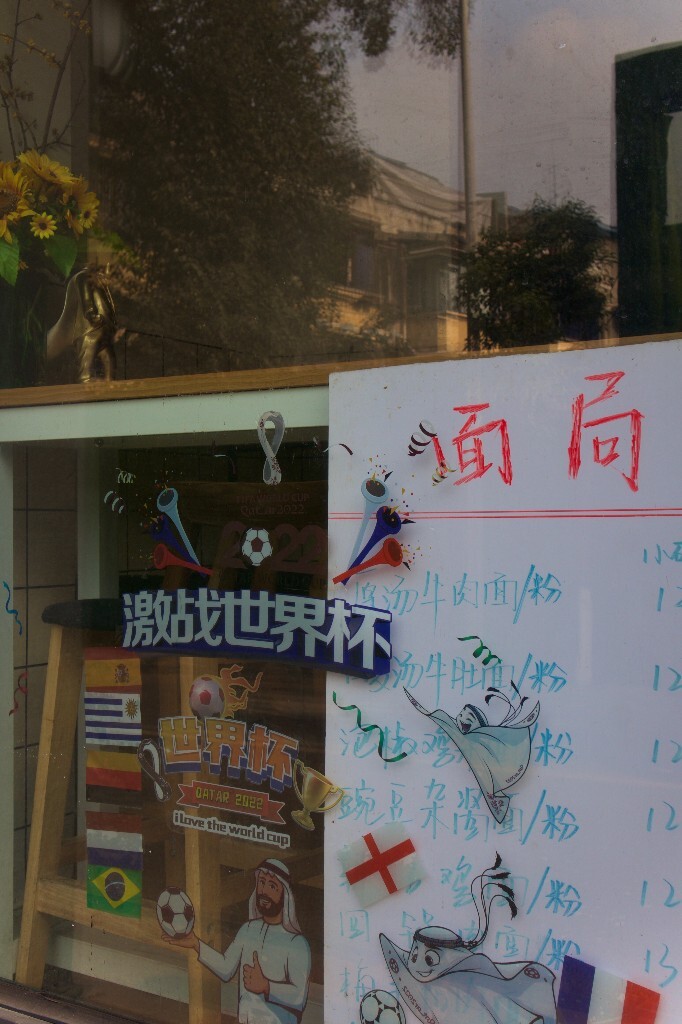 面局
QATAR 2022
2022
激战世界杯
世界杯
QATAR 2022
i love the world cup
小碗
汤牛肉面/粉 12
汤牛肚面/粉 12
泡椒鸡 /粉 12
豌豆杂酱面/粉 12
鸡面/粉 12
回锅肉面/粉 13